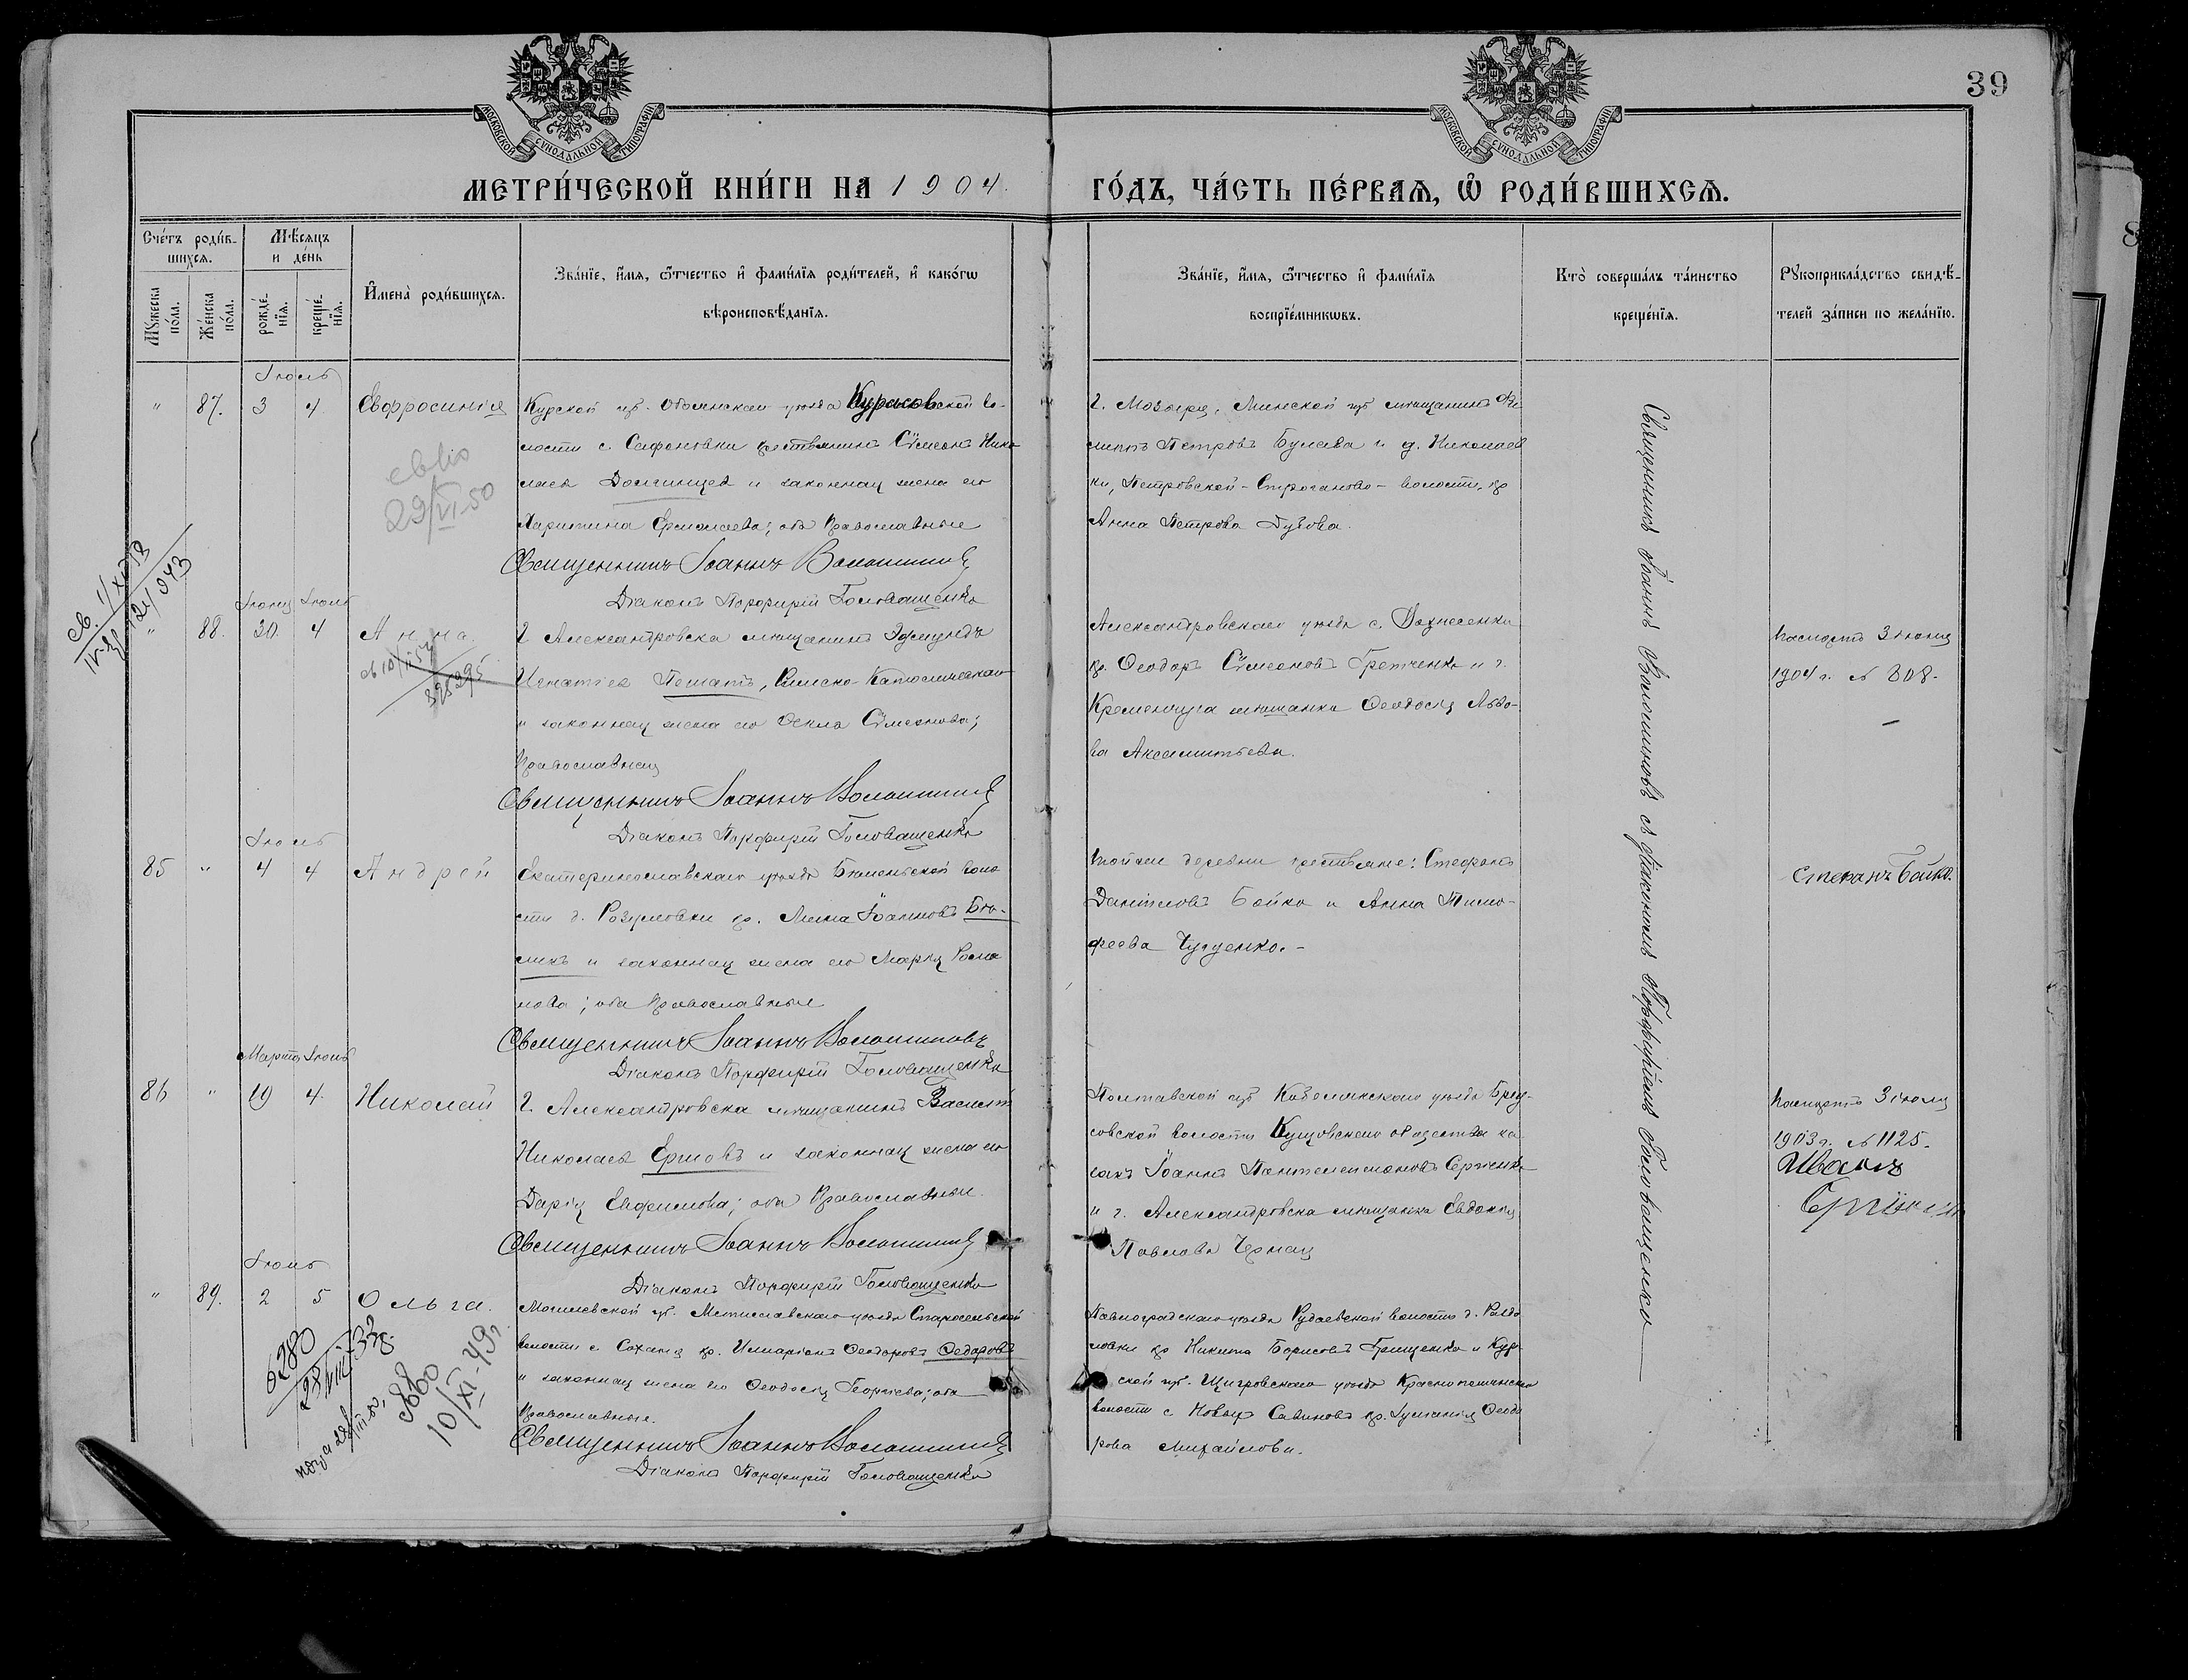 39
МОСКОВСКОЙ СУНОДАЛЬНОЙ ТИПОГРАФІИ
МОСКОВСКОЙ СУНОДАЛЬНОЙ ТИПОГРАФІИ
МЕТРИ́ЧЕСКОЙ КНИ́ГИ НА 1904.
ГО́ДЪ, ЧА́СТЬ ПЕ́РВАѦ, Ѡ҆ РОДИ́ВШИХСѦ.
Сче́тъ роди́в-
шихсѧ.
Мꙋ́жеска
по́ла.
Же́нска
по́ла.
Мѣ́сѧцъ
и де́нь
рожде́-
нїѧ.
креще́-
нїѧ.
И҆мена̀ роди́вшихсѧ.
Зва́нїе, и҆́мѧ, ѻ҆́тчество и҆ фами́лїѧ роди́телей, и҆ како́гѡ
вѣроисповѣ́данїѧ.
Зва́нїе, и҆́мѧ, ѻ҆́тчество и҆ фами́лїѧ
воспрїе́мникѡвъ.
Кто̀ соверша́лъ та́инство
креще́нїѧ.
Рꙋкоприкла́дство свидѣ́-
телей за́писи по жела́нїю.
Іюль
" 87. 3 4. Евфросинія
Курской губ. Обоянскаго уѣзда Курасовской во-
лости с. Сафоновки крестьянинъ Сѵмеонъ Нико-
лаевъ Долгинцев и законная жена его
Харитина Ермолаева; оба Православные
Священникъ Іоаннъ Волошинов
Діаконъ Порфирій Головащенко
г. Мозыря, Минской губ мѣщанинъ
Петровъ Булава и д. Николаев
ки, Петровской-Строганово-волости, кр
Анна Петрова Дубова.
29/VI 50
Іюня Іюль
" 88. 30. 4 Анна.
г Александровска мѣщанинъ Эдмундъ
Игнатіев Пешатъ, Римско-Католическаго
и законная жена его Ѳекла Сѵмеонова;
Православная
Священникъ Іоаннъ Волошинов
Діаконъ Порфирій Головащенко
Александровскаго уѣзда с. Вознесенки
кр. Ѳеодоръ Сѵмеоновъ Гретченко и г.
Кременчуга мѣщанка Ѳеодосія Льво-
ва Аксамитьева.
Паспортъ 3 іюня
1904 г. № 808.
Іюль
85 " 4 4 Андрей
Екатеринославскаго уѣзда Бѣленьской воло
сти д. Розумовки кр. Лука Іоанновъ Бѣ-
ликъ и законная жена его Марія Рома
нова; оба Православные
Священникъ Іоаннъ Волошиновъ
Діаконъ Порфирій Головащенко
той же деревни крестьяне: Стефанъ
Даніиловъ Бойко и Анна Тимо-
феева Чуденко.-
Степанъ Бойко.
Марта Іюль
86 " 19 4. Николай
г. Александровска мѣщанинъ Василій
Николаев Ермовъ и законная жена его
Дарія Евфимова; оба Православные.
Священникъ Іоаннъ Волошинов
Діаконъ Порфирій Головащенко
Полтавской губ Кобелякскаго уѣзда Бред-
совской волости общества ка
закъ Іоаннъ Пантелеимоновъ Серченко
и г. Александровска мѣщанка Евдокія
Павлова Черная
Паспортъ 3 іюля
1903 г. № 1125.
Иванъ
Іюль
" 89. 2 5 Ольга.
Могилевской губ. Мстиславскаго уѣзда Старосельской
волости с. кр. Иларіонъ Ѳеодоровъ Ѳедаровъ
и законная жена его Ѳеодосія Георгіева; оба
Православные.
Священникъ Іоаннъ Волошинов
Діаконъ Порфирій Головащенко
Павлоградскаго уѣзда волости д.
кр Никита Борисовъ Грищенко и Кур-
ской губ. Щигровскаго уѣзда
волости с Новыхъ Савиновъ кр. Ѳеодо
рова Михайлова.
10/XI-49г.
Священникъ Іоаннъ Волошиновъ съ діакономъ Порфиріемъ Головащенко